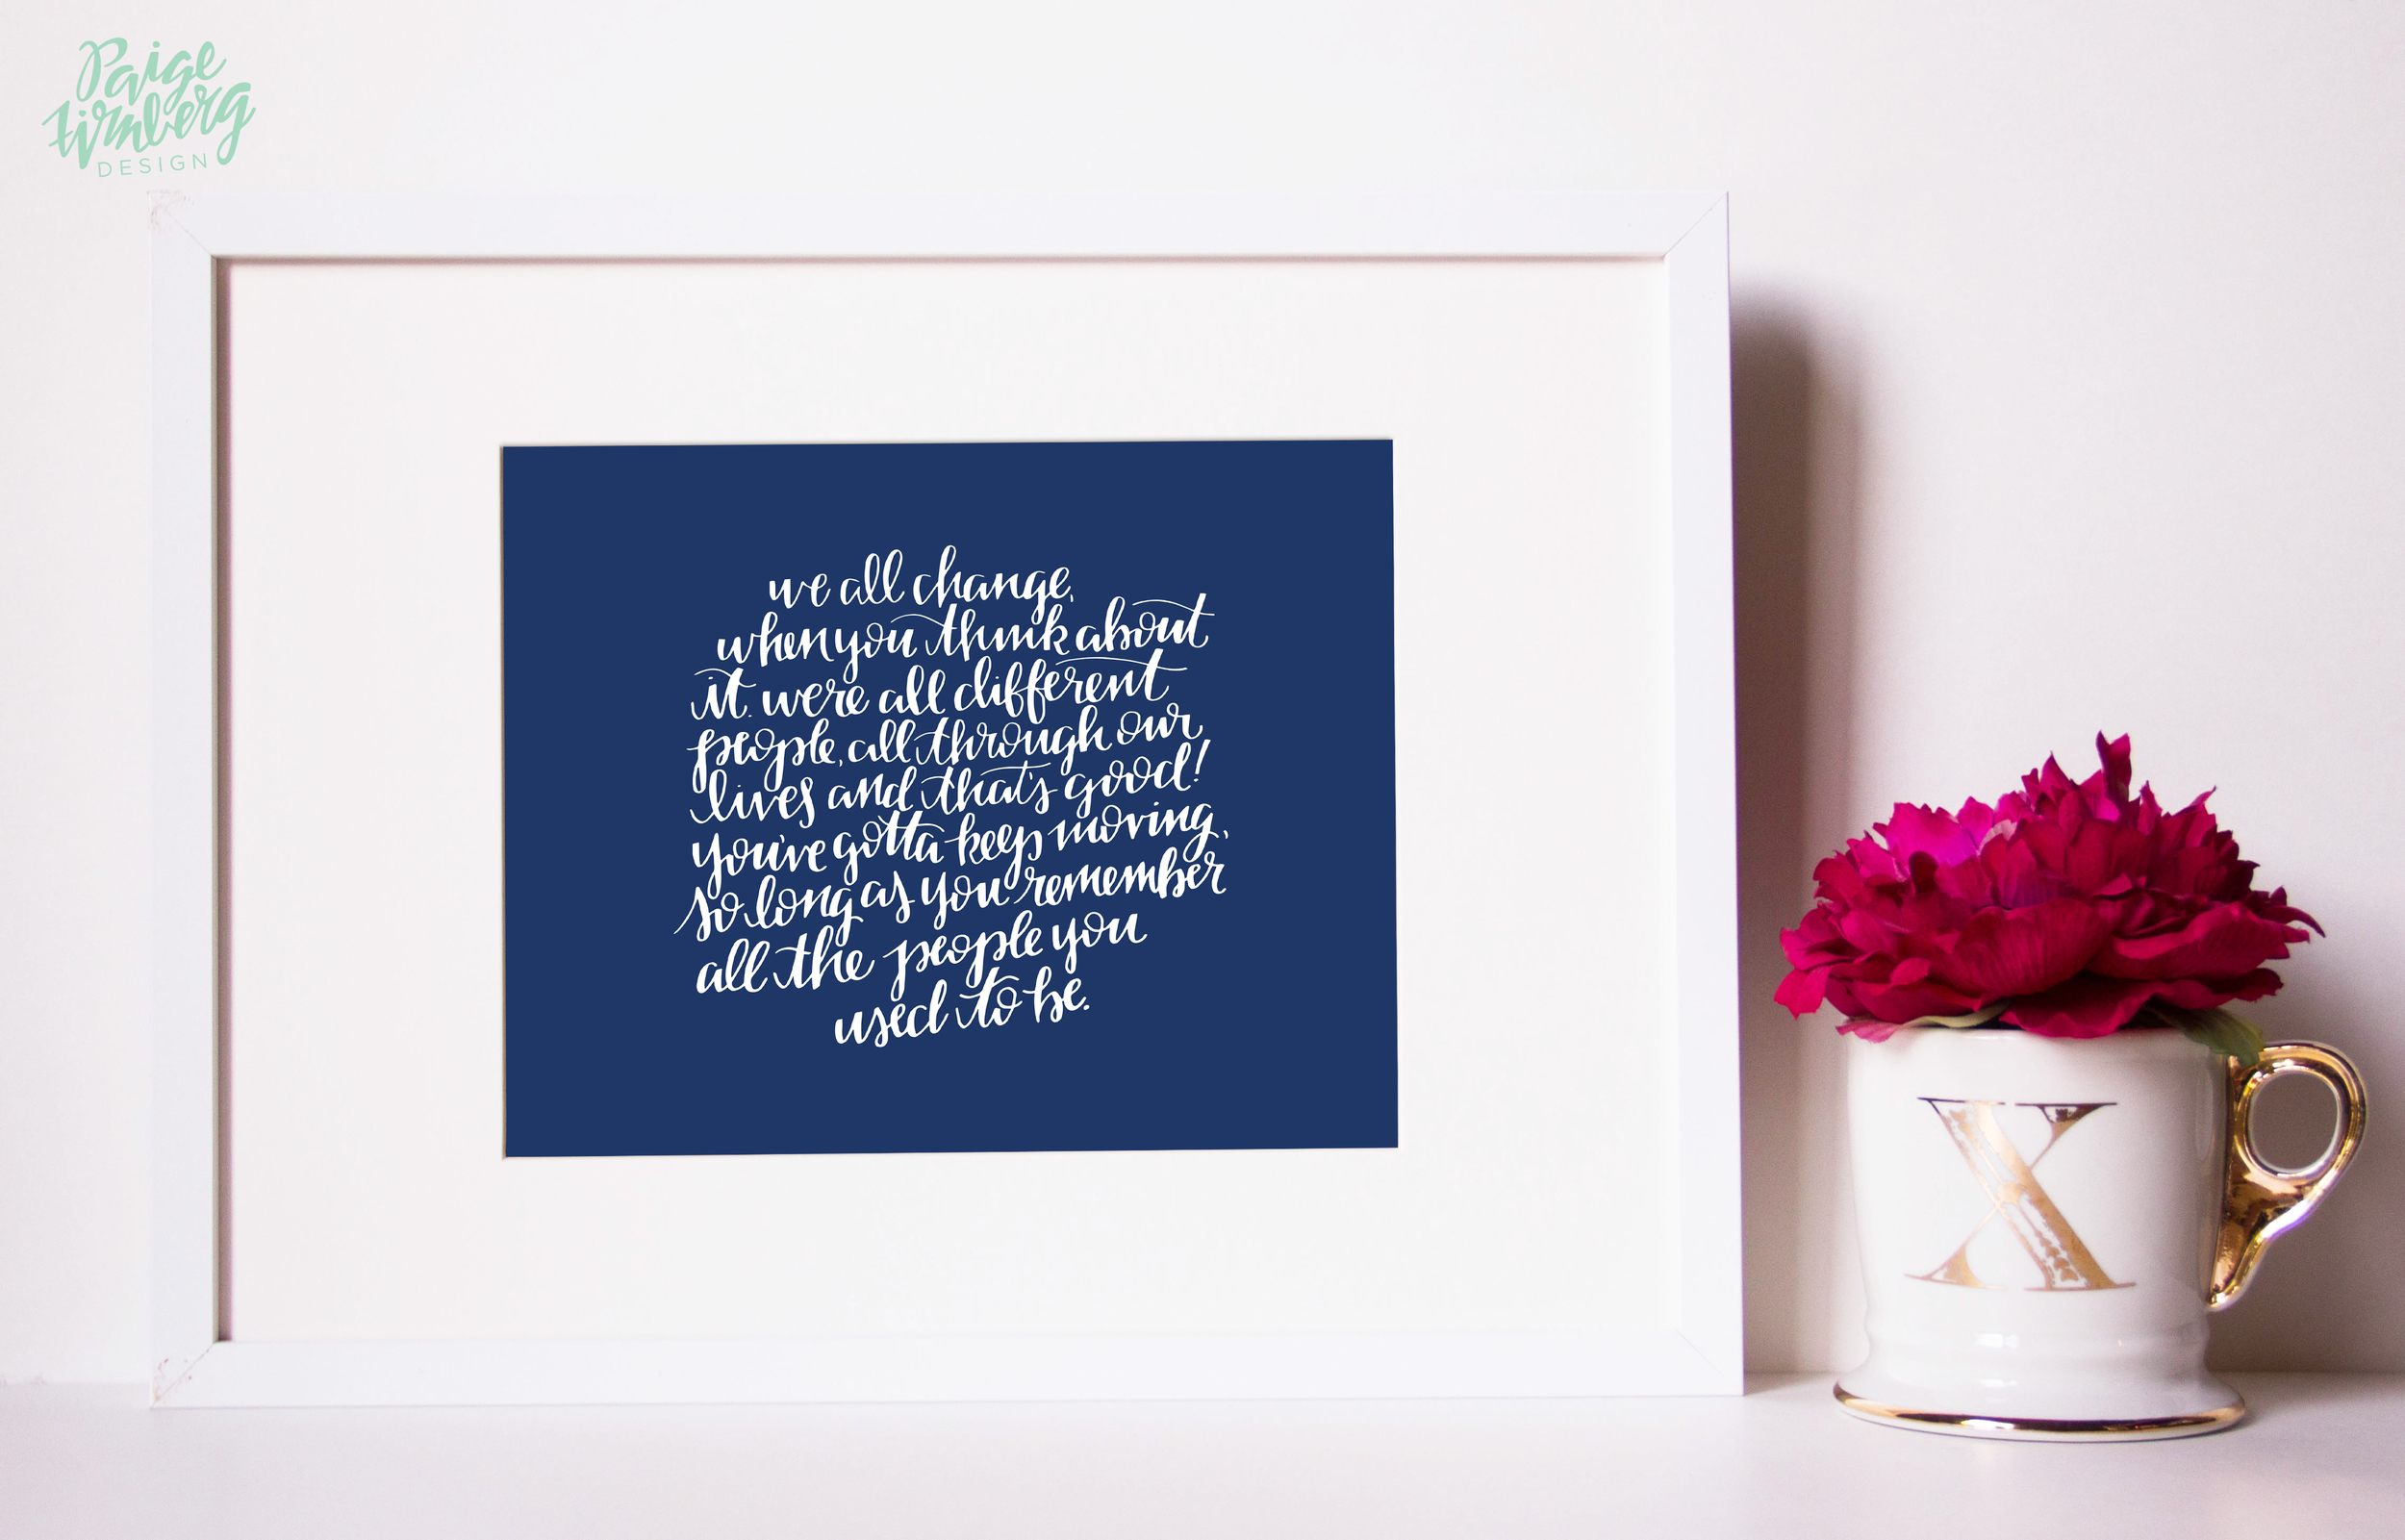 Paige
Firnberg
DESIGN
we all change,
when you think about
it. were all different
people, all through our
lives and that's good!
you've gotta keep moving,
so long as you remember
all the people you
used to be.
X